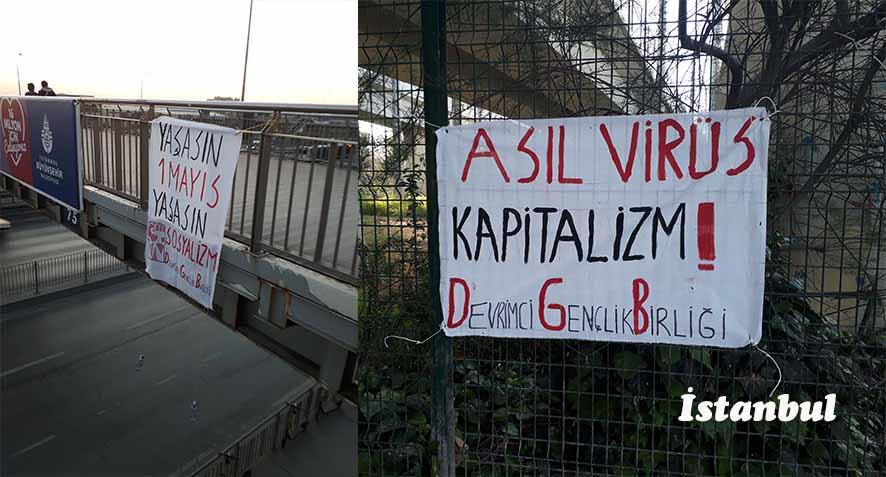 16
MİLYON
İÇİN
İSTANBUL
BÜYÜKŞEHİR
BELEDİYESİ
75
YAŞASIN
1 MAYIS
YAŞASIN
SOSYALİZM
DEVRİMCİ GENÇLİK BİRLİĞİ
ASIL VİRÜS
KAPİTALİZM!
DGB
DEVRİMCİ GENÇLİK BİRLİĞİ
İstanbul